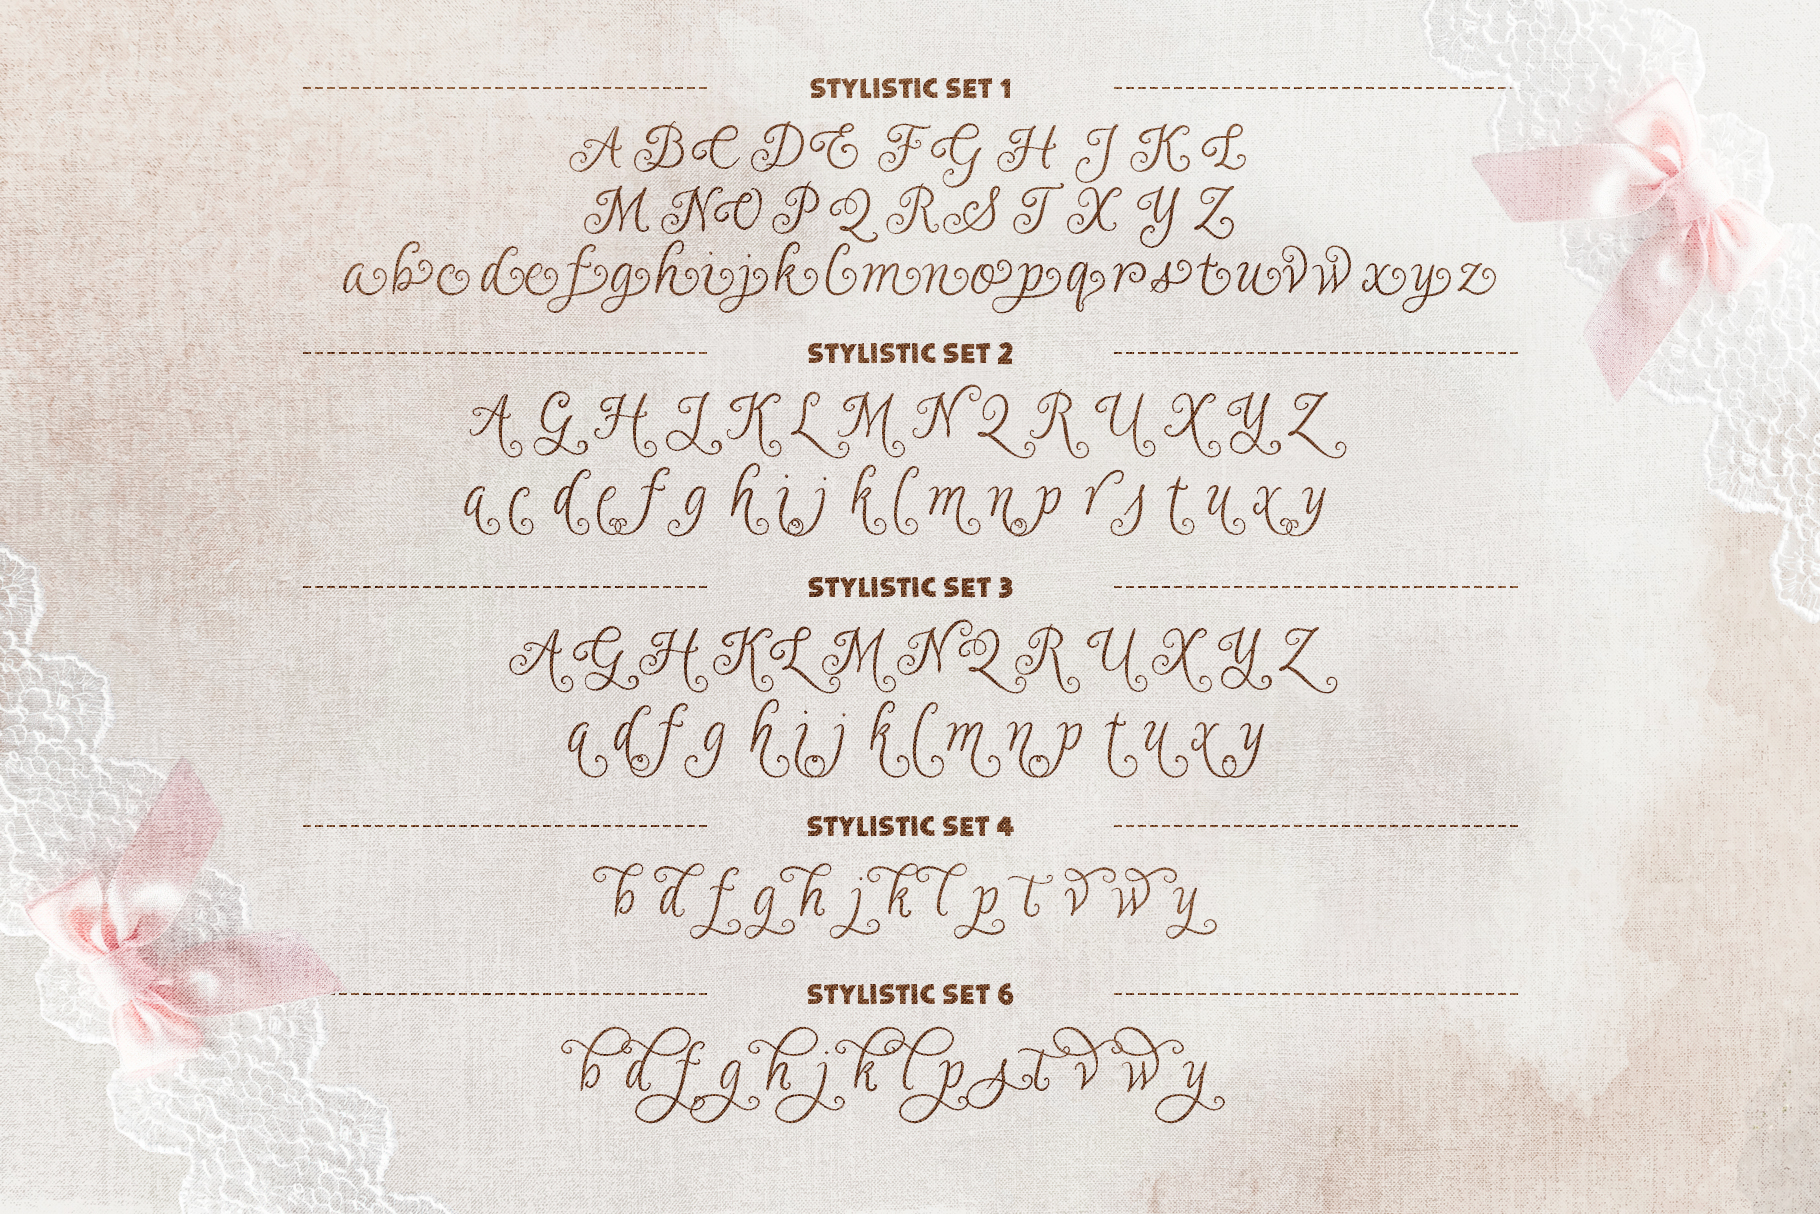 STYLISTIC SET 1
A B C D E F G H J K L
M N O P Q R S T X Y Z
a b c d e f g h i j k l m n o p q r s t u v w x y z
STYLISTIC SET 2
A G H J K L M N Q R U X Y Z
a c d e f g h i j k l m n p r s t u x y
STYLISTIC SET 3
A G H K L M N Q R U X Y Z
a d f g h i j k l m n p t u x y
STYLISTIC SET 4
b d f g h j k l p t v w y
STYLISTIC SET 6
b d f g h j k l p s t v w y